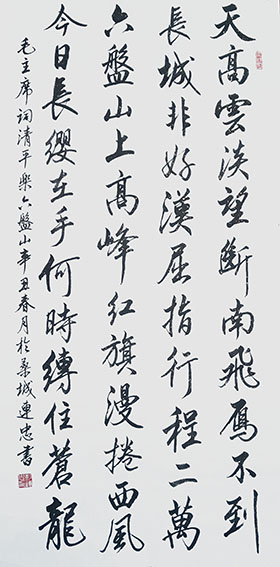 天高雲淡望斷南飛鴈不到
長城非好漢屈指行程二萬
六盤山上高峰紅旗漫捲西風
今日長纓在手何時縛住蒼龍
毛主席詞清平樂六盤山辛丑春月於桑城連忠書